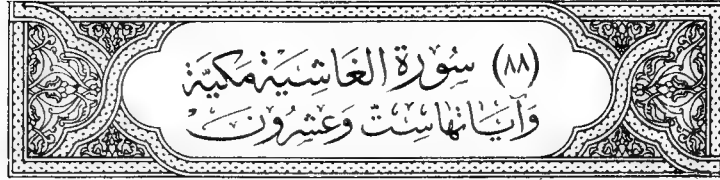 (٨٨) سُورَة الغَاشِيَة مَكِيَّة
وَآيَاتهَا سِتّ وَعشِرُونَ